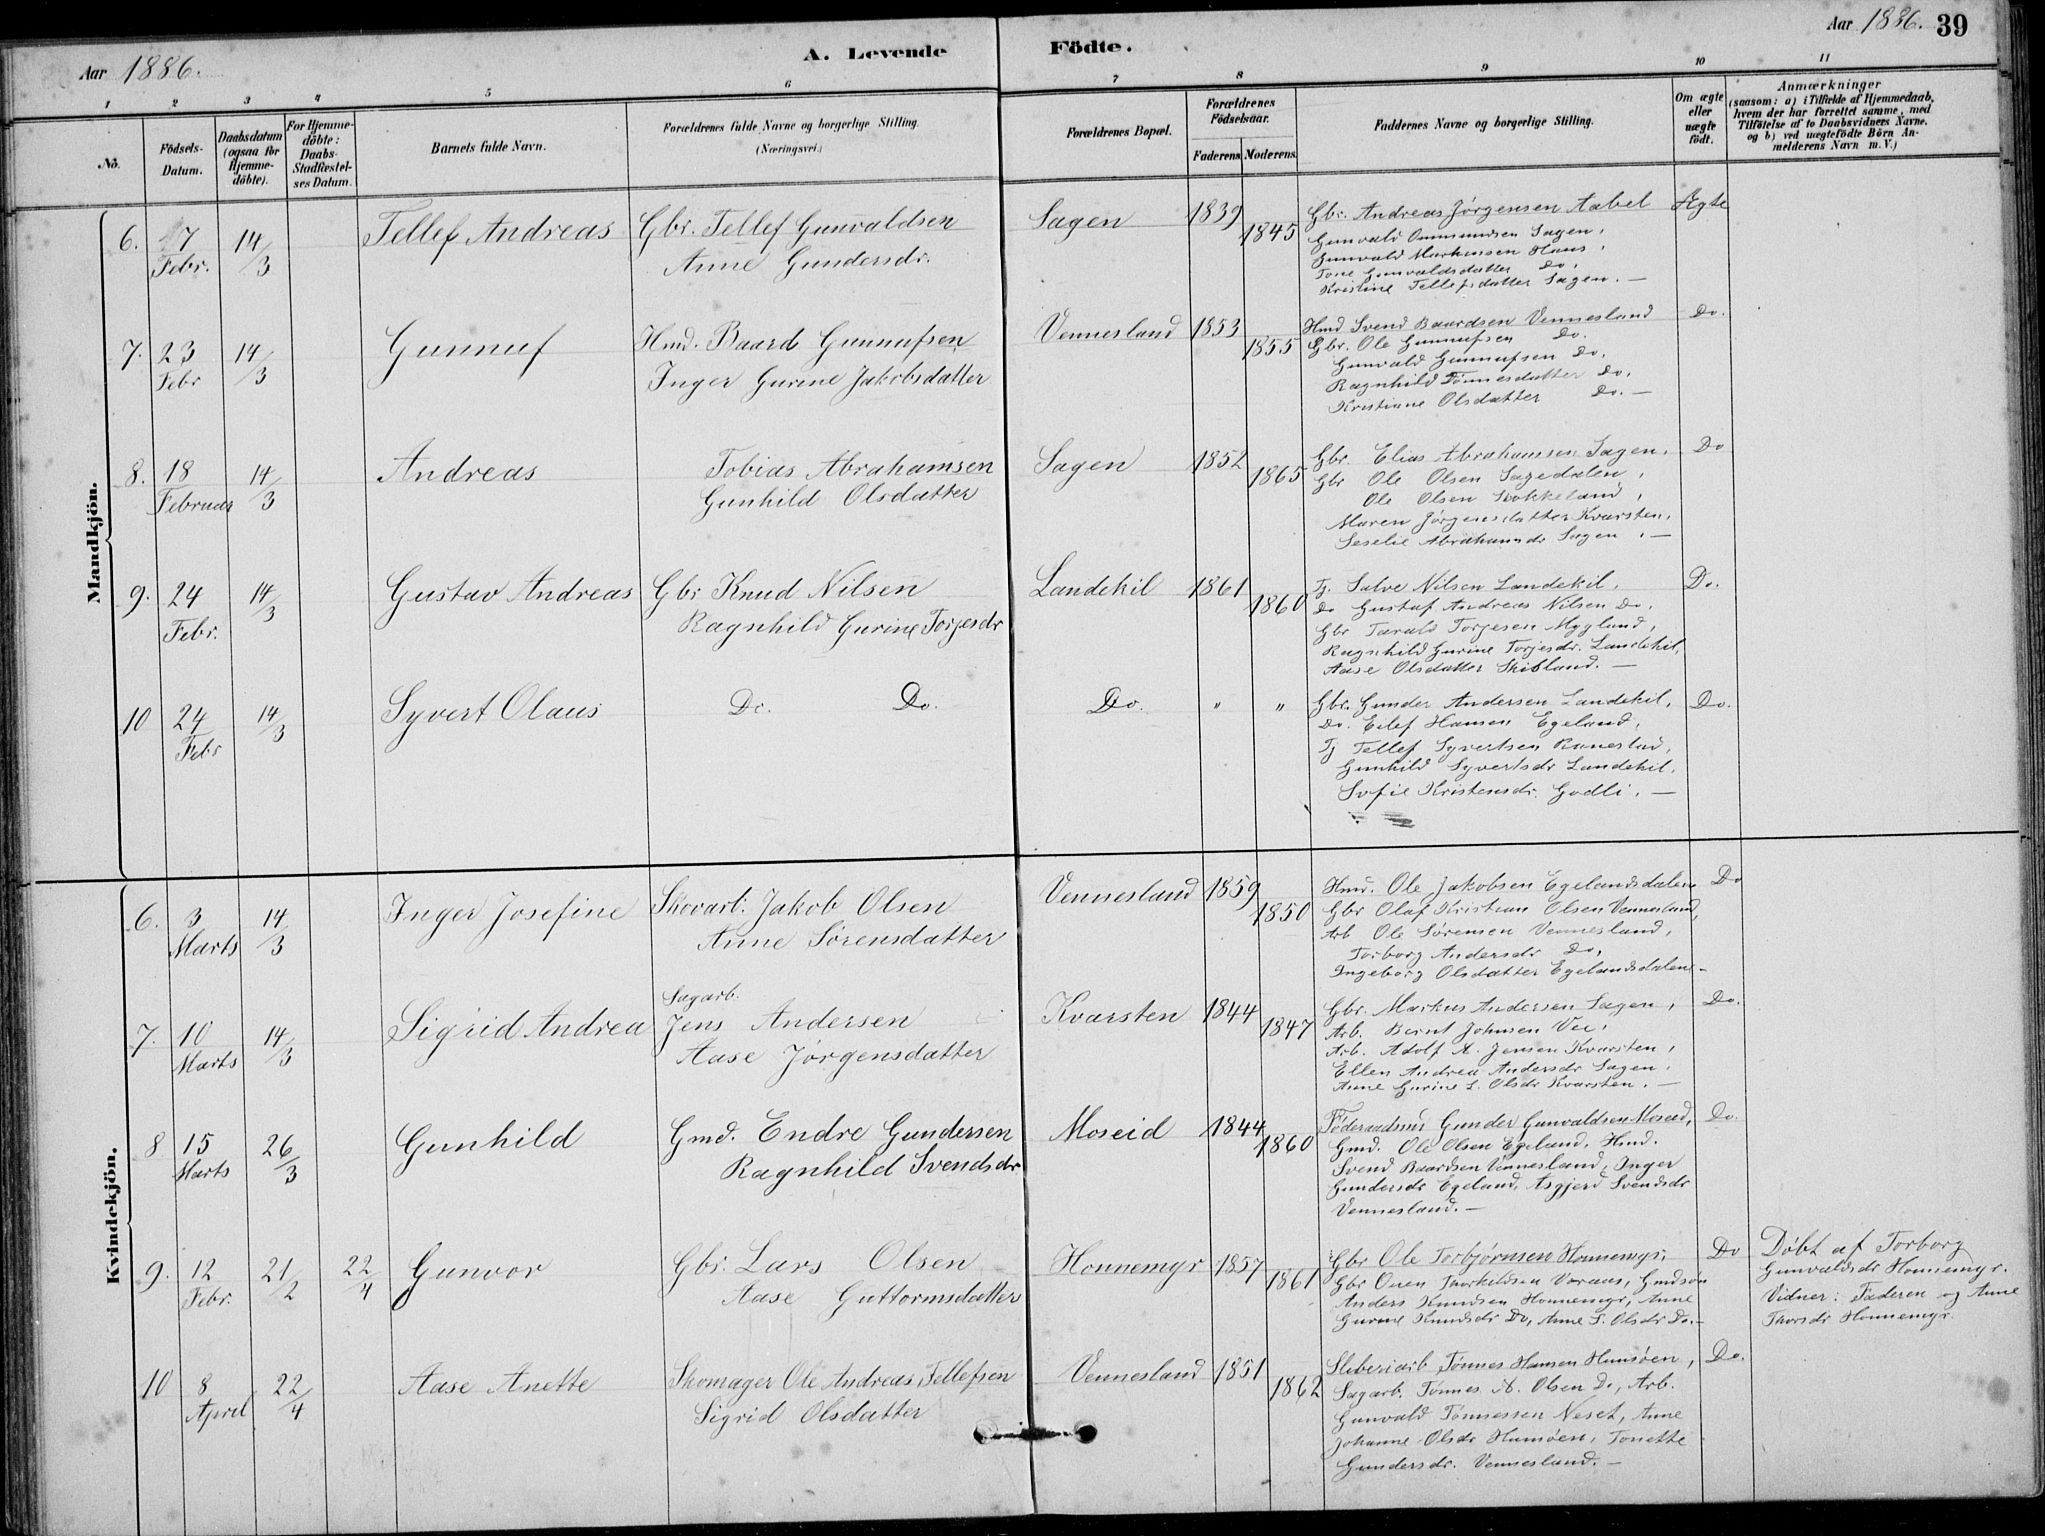 Aar 1886.
A. Levende Födte.
Aar 1886. 39
1 2 3 4 5 6 7 8 9 10 11
Nô.
Födsels-Datum.
Daabsdatum (ogsaa for Hjemme-döbte).
For Hjemme-döbte: Daabs-Stadfæstel-ses Datum.
Barnets fulde Navn.
Forældrenes fulde Navne og borgerlige Stilling. (Næringsvei.)
Forældrenes Bopæl.
Forældrenes Födselsaar.
Faderens Moderens.
Faddernes Navne og borgerlige Stilling.
Om ægte eller uægte födt.
Anmærkninger
(saasom: a) i Tilfælde af Hjemmedaab,
hvem der har forrettet samme, med
Tilföielse af to Daabsvidners Navne.
og b) ved uægtefödte Börn An-
melderens Navn m. V.)
Mandkjön.
6. 17 Febr. 14/3 Tellef Andreas
Gbr. Tellef Gunvaldsen
Anne Gundersdr.
Sagen 1839 1845
Gbr. Andreas Jörgensen Aabel
Gunvald Ommundsen Sagen,
Gunvald Markussen Haus,
Tone Gunvaldsdatter Do,
Kristine Tellefsdatter Sagen. —
Ægte
7. 23 Febr 14/3 Gunnuf
Hmd. Baard Gunnufsen
Inger Gurine Jakobsdatter
Vennesland 1853 1855
Hmd Svend Baardsen Vennesland
Gbr. Ole Gunnufsen Do.
Gunvald Gunnufsen Do.
Ragnhild Tönnesdatter Do.
Kristiane Olsdatter Do. —
Do.
8. 18 Februar 14/3 Andreas
Tobias Abrahamsen
Gunhild Olsdatter
Sagen 1852 1865
Gbr. Elias Abrahamsen Sagen,
Gbr Ole Olsen Sagedalen,
Ole Olsen Stokkeland,
Maren Jörgensdatter Kvarsten,
Seselie Abrahamsdr Sagen. —
Do
9. 24 Febr. 14/3 Gustav Andreas
Gbr Knud Nilsen
Ragnhild Gurine Torjesdr
Landekil 1861 1860
Tj. Salve Nilsen Landekil,
Do Gustaf Andreas Nilsen Do.
Gbr Tarald Torjesen Mygland,
Ragnhild Gurine Torjesdr. Landekil,
Aase Olsdatter Skibland. —
Do.
10 24 Febr 14/3 Syvert Olaus
Do. Do.
Do. " "
Gbr. Gunder Andersen Landekil,
Do. Eilef Hansen Egeland,
Tj Tellef Syvertsen Ranestad,
Gunhild Syvertsdr Landekil,
Sofie Kristensdr. Godli. —
Do.
Kvindekjön.
6. 3 Marts 14/3 Inger Josefine
Skovarb. Jakob Olsen
Anne Sörensdatter
Vennesland 1859 1850
Hmd. Ole Jakobsen Egelandsdalen
Gbr Olaf Kristian Olsen Vennesland,
Arb Ole Sörensen Vennesland,
Torborg Andersdr Do,
Ingeborg Olsdatter Egelandsdalen —
Do
7. 10 Marts 14/3 Sigrid Andrea
Sagarb.
Jens Andersen
Aase Jörgensdatter
Kvarsten 1844 1847
Gbr. Markus Andersen Sagen,
Arb. Bernt Johnsen Vee,
Arb. Adolf A. Jensen Kvarsten,
Ellen Andrea Andersdr Sagen,
Anne Gurine L. Olsdr Kvarsten. —
Do.
8 15 Marts 26/3 Gunhild
Gmd. Endre Gundersen
Ragnhild Svendsdr
Moseid 1844 1860
Föderaadsmd Gunder Gunvaldsen Moseid,
Gmd. Ole Olsen Egeland, Hmd.
Svend Baardsen Vennesland, Inger
Gundersdr Egeland, Asgjerd Svendsdr
Vennesland. —
Do.
9. 12 Febr. 21/2 22/4 Gunvor
Gbr. Lars Olsen
Aase Guttormsdatter
Honnemyr 1857 1861
Gbr Ole Torbjörnsen Honnemyr,
Gbr Ouen Thorkildsen Voraas, Gmdsön
Anders Knudsen Honnemyr, Anne
Gurine Knudsdr Do, Anne S. Olsdr Do. —
Do
Döbt af Torborg
Gunvaldsdr Honnemyr.
Vidner: Faderen og Anne
Thorsdr Honnemyr.
10 8 April 22/4 Aase Anette
Skomager Ole Andreas Tellefsen
Sigrid Olsdatter
Vennesland 1851 1862
Sliberiarb Tönnes Hansen Hunsöen,
Sagarb. Tönnes A. Olsen Do, Arb.
Gunvald Tönnessen Neset, Anne
Johanne Olsdr Hunsöen, Tonette
Gundersdr. Vennesland. —
Do.